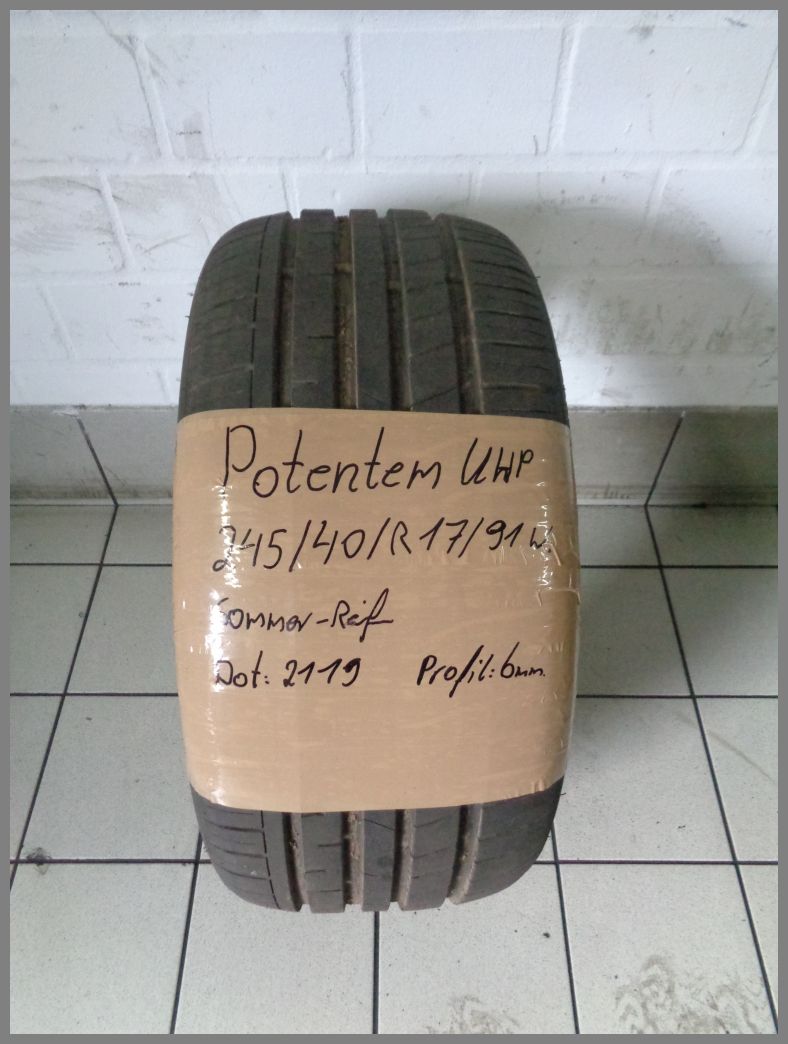 Potentem UHP
245/40/R17/91W
Sommer-Reif
Dot: 2119 Profil: 6mm.